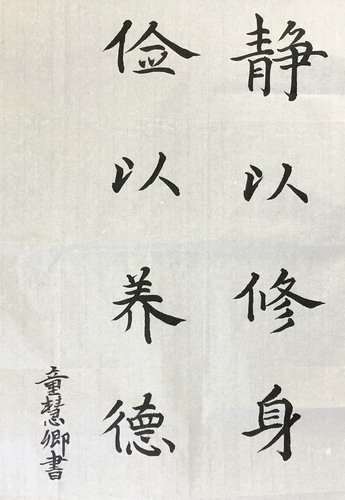 静以修身
俭以养德
童慧卿書